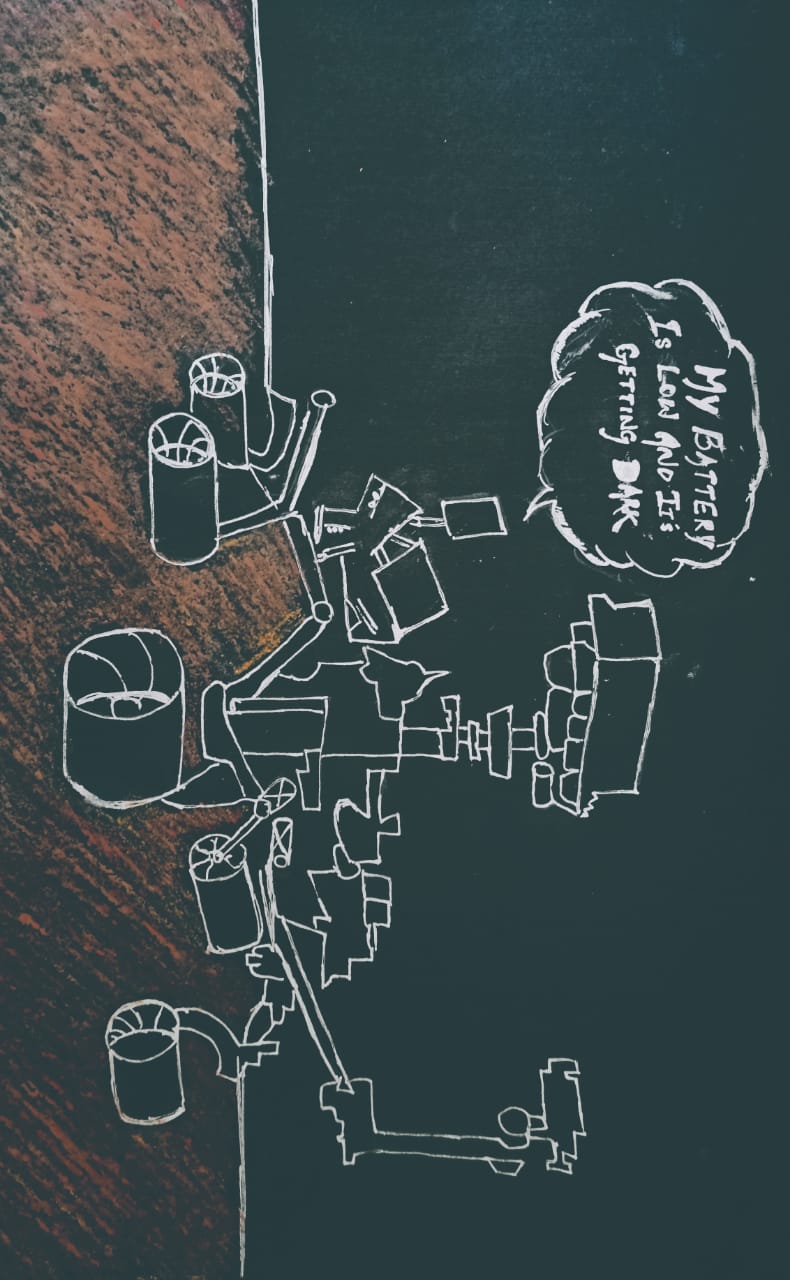 My BATTERY
Is LOW AND It's
GETTING DARK